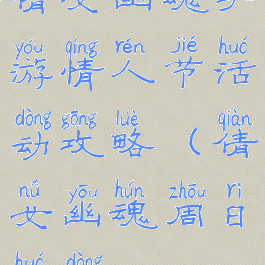 幽魂
yóu qíng rén jié huó
游情人节活
dòng gōng lüè qiàn
动攻略（倩
nǚ yōu hún zhōu rì
女幽魂周日
huó dòng